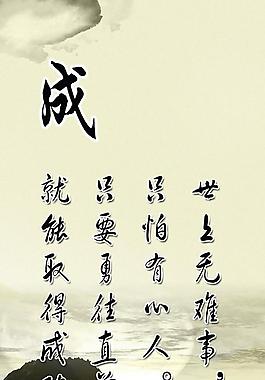 成
世上无难事，
只怕有心人。
只要勇往直
就能取得成